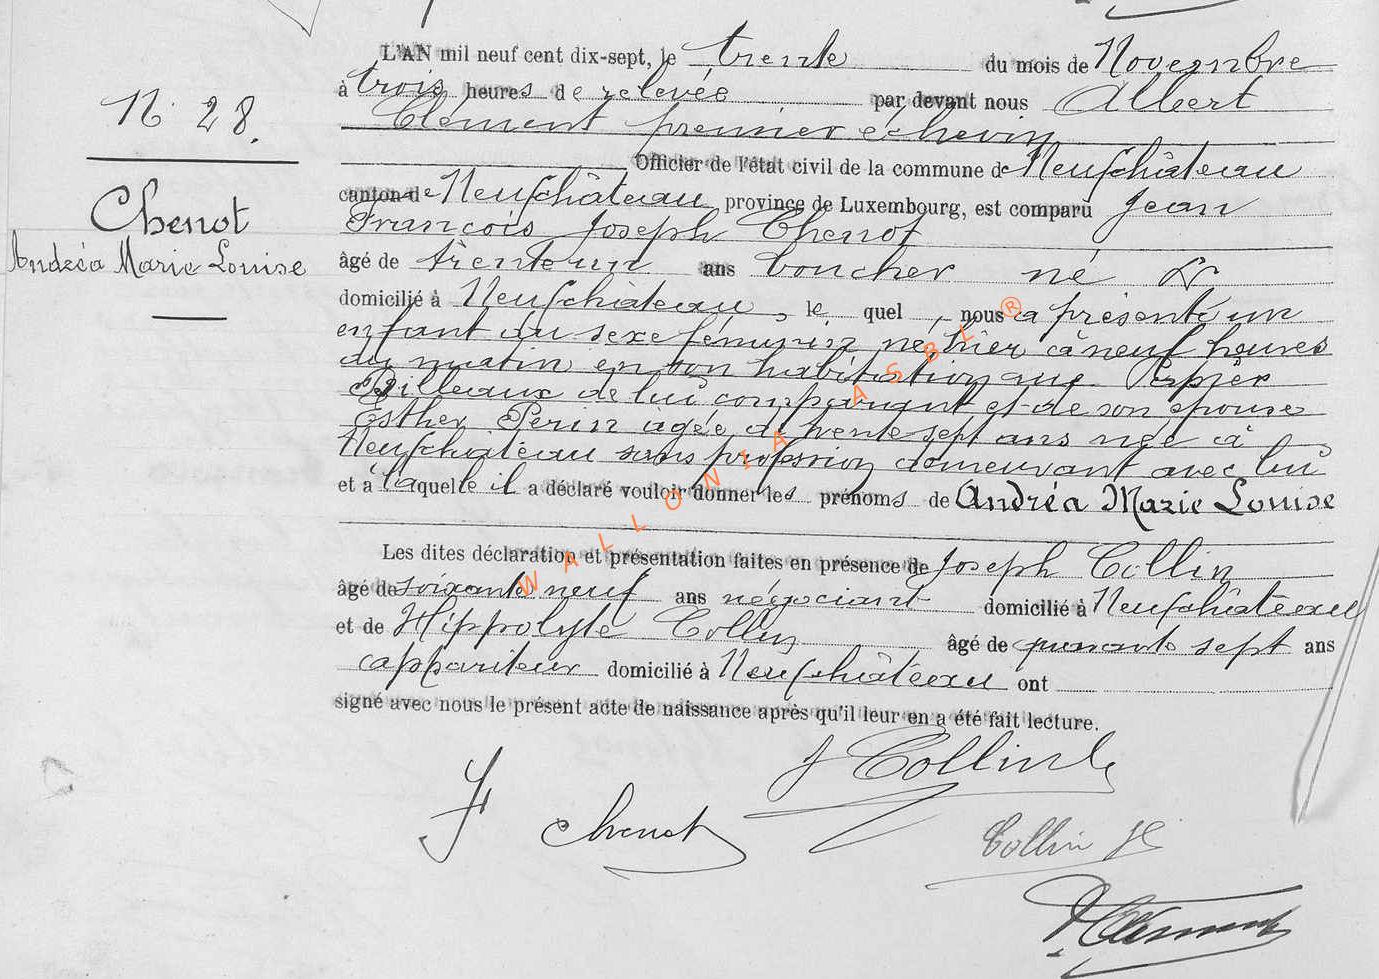 N. 28.
Chenot
Andréa Marie Louise
L'AN mil neuf cent dix-sept, le trente du mois de Novembre
à trois heures de relevée par devant nous Albert
Clément premier échevin
Officier de l'état civil de la commune de Neufchâteau
canton de Neufchâteau province de Luxembourg, est comparu Jean
François Joseph Chenot
âgé de trente un ans boucher né &
domicilié à Neufchâteau, le quel, nous a présenté un
enfant du sexe féminin né hier à neuf heures
du matin en son habitation rue
de lui comparant et de son épouse
Esther Perin âgée de trente sept ans née à
Neufchâteau sans profession demeurant avec lui
et à laquelle il a déclaré vouloir donner les prénoms de Andréa Marie Louise
Les dites déclaration et présentation faites en présence de Joseph Collin
âgé de soixante neuf ans négociant domicilié à Neufchâteau
et de Hippolyte Collin âgé de quarante sept ans
appariteur domicilié à Neufchâteau ont
signé avec nous le présent acte de naissance après qu'il leur en a été fait lecture.
J Collin
J Chenot
Collin H
Clément
WALLONIA ASBL ®